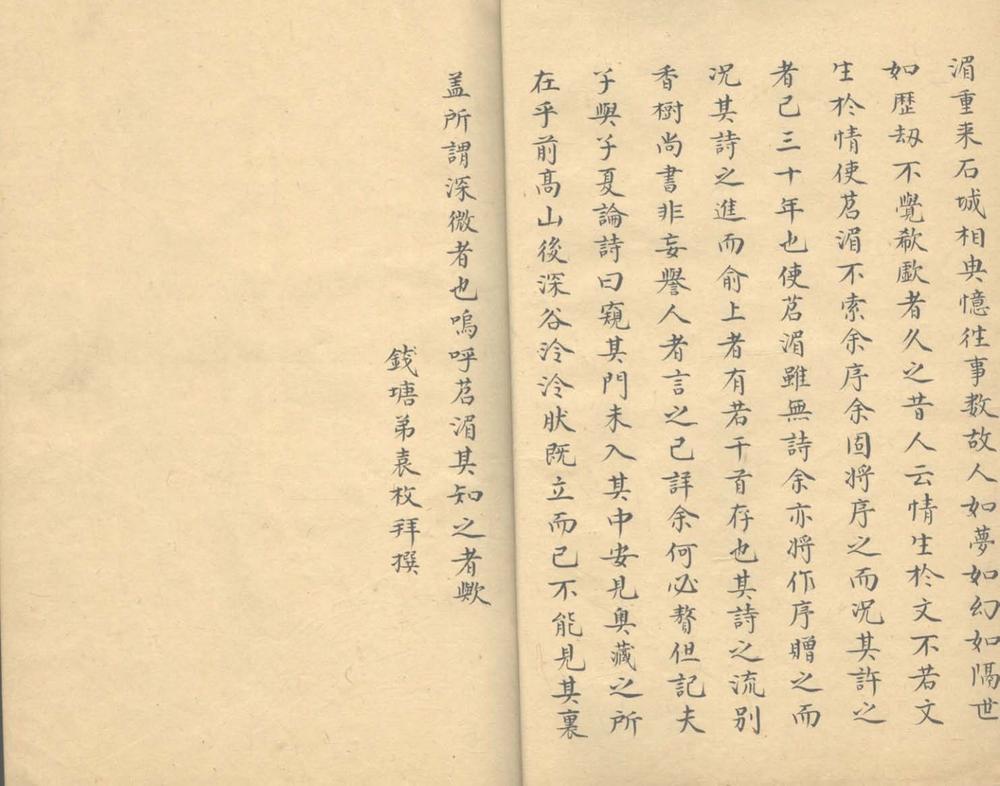 湄重来石城相與憶往事数故人如夢如幻如隔世
如歷刼不覺欷歔者久之昔人云情生扵文不若文
生扵情使苕湄不索余序余固将序之而况其許之
者已三十年也使苕湄雖無詩余亦将作序贈之而
况其詩之進而俞上者有若干首存也其詩之流别
香樹尚書非妄譽人者言之已詳余何必贅但記夫
子與子夏論詩曰窺其門未入其中安見奥藏之所
在乎前髙山後深谷泠泠肰既立而已不能見其裏
盖所謂深微者也嗚呼苕湄其知之者歟
錢塘弟袁枚拜撰